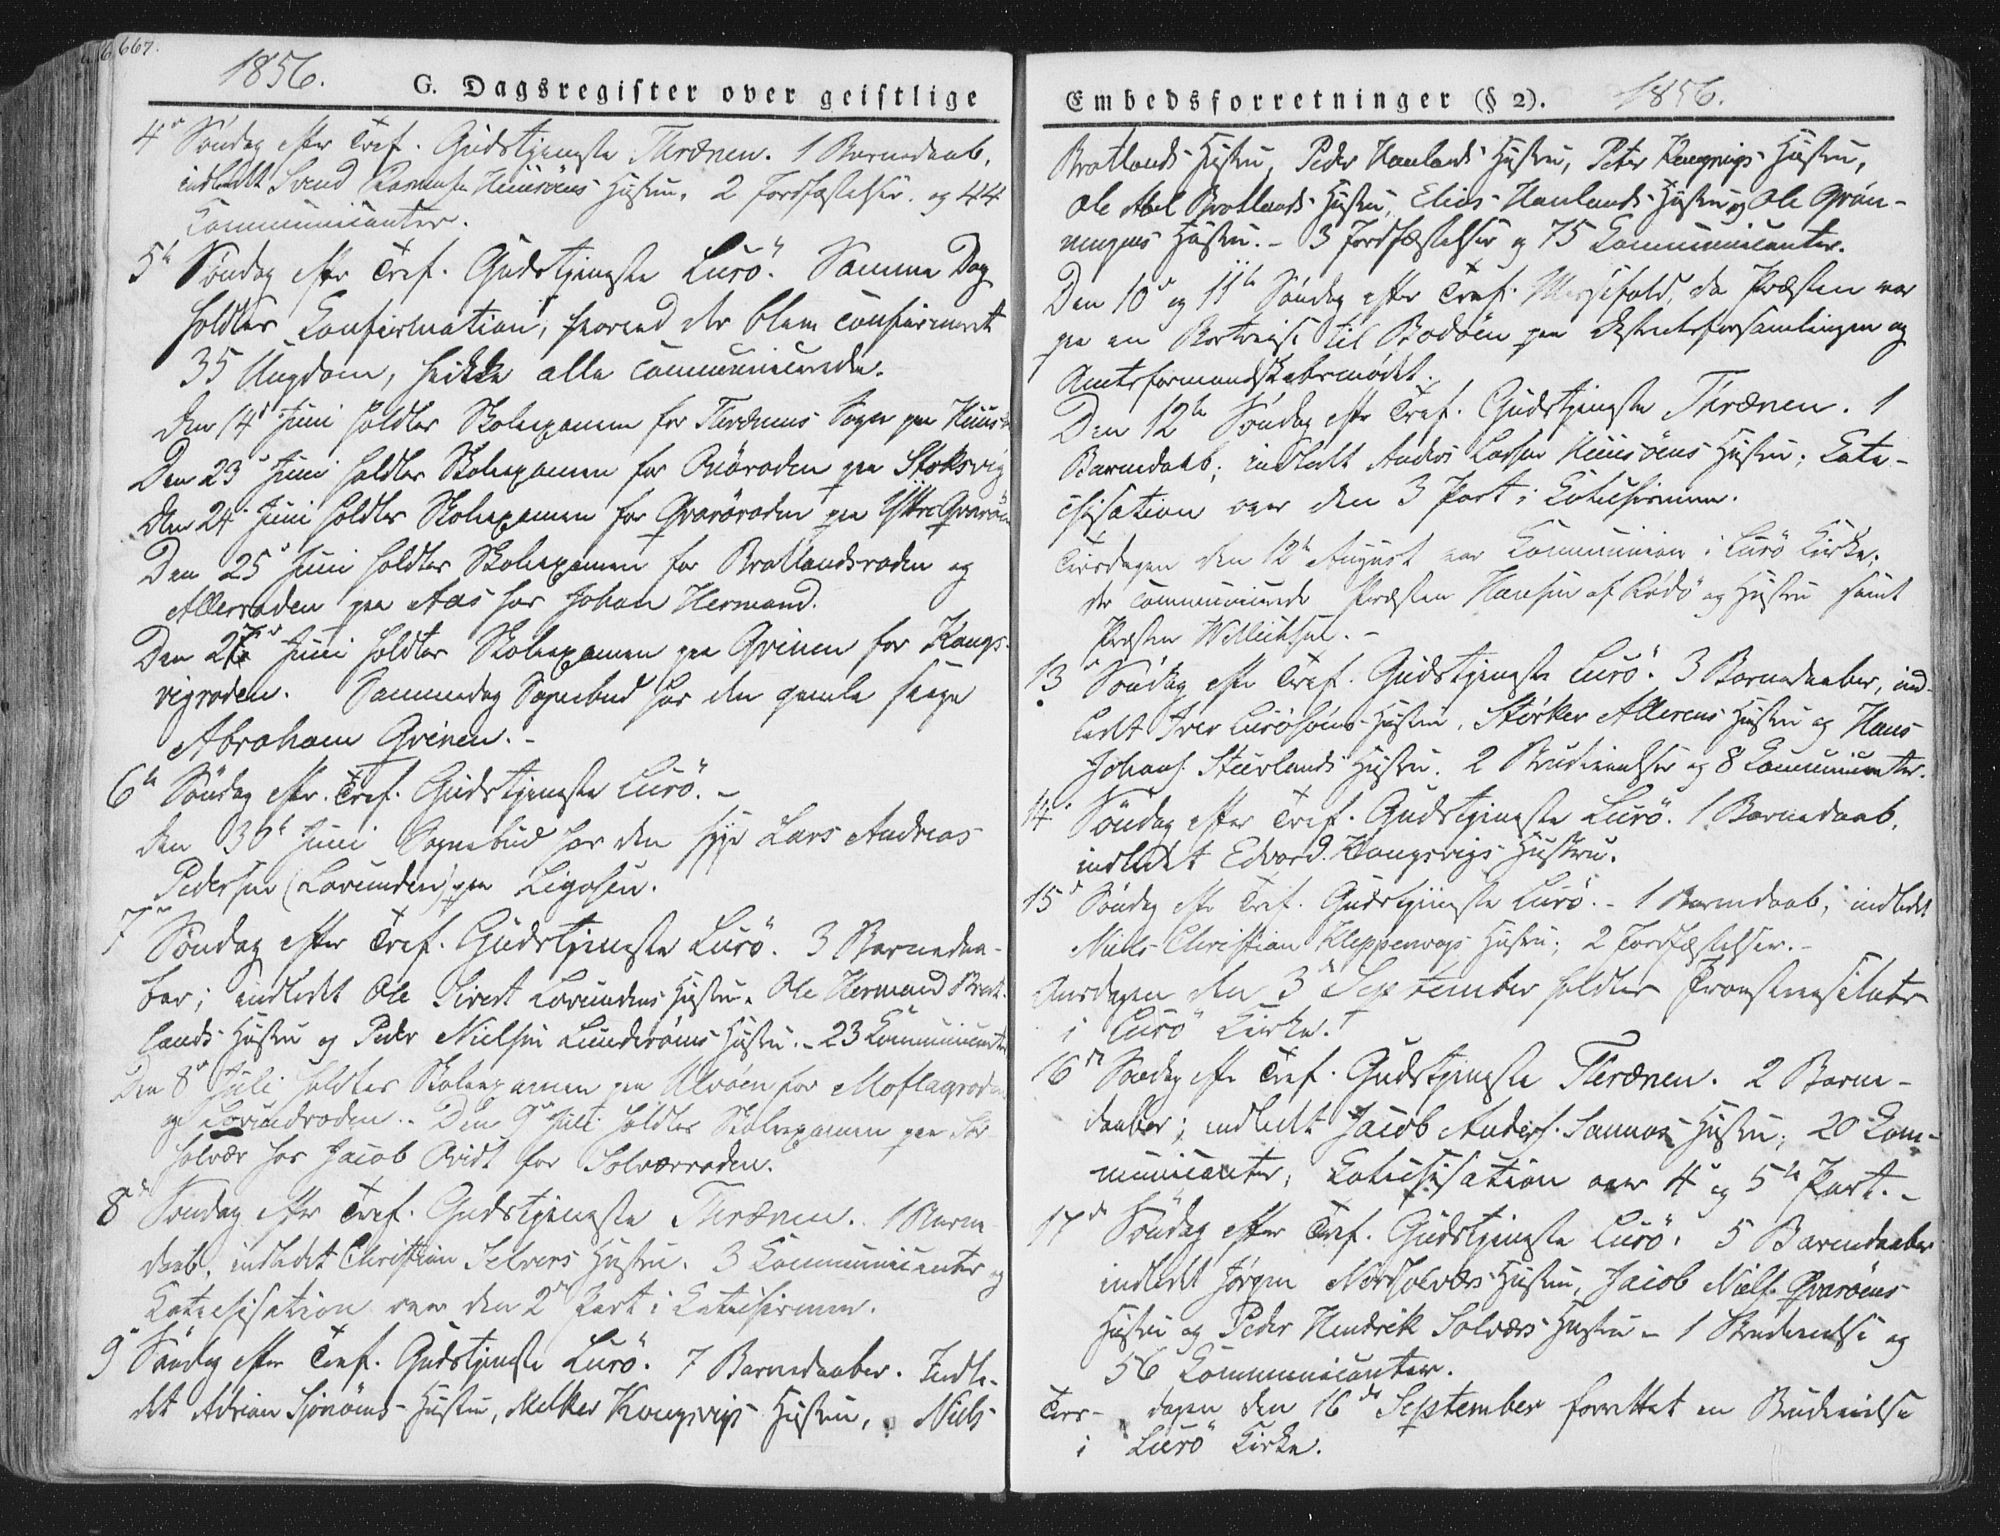 667.
1856.
G. Dagsregister over geistlige
4de Søndag efter Tref. Gudstjeneste Thrænen. 1 Barnedaab,
indledt Svend Husøens Hustru, 2 Jordfæstelser og 44
Communicanter.
5te Søndag efter Tref. Gudstjeneste Lurö. Samme Dag
holdtes Confirmation, hvorved der blev confirmeret
35 Ungdom, hvilke alle communicerede.
Den 14de Juni holdtes Skoleexamen for Thrænens Sogn paa
Den 23de Juni holdtes Skoleexamen for paa Stoksvig
Den 24de Juni holdtes Skoleexamen for Qvarøroden paa Yttre Qvarøen
Den 25de Juni holdtes Skoleexamen for Bratlandsroden og
Allerroden paa Aas hos Johan Hermand.
Den Juni holdtes Skoleexamen paa Qvinen for Kongs-
vigroden. Sammedag Sognebud hos den gamle syge
Abraham Qvinen. -
6te Søndag efter Tref. Gudstjeneste Lurö. -
den 30te Juni Sognebud hos den syge Lars Andreas
Pedersen (Lovunden) paa
7de Søndag efter Tref. Gudstjeneste Lurö. 3 Barnedaa-
ber; indledet Ole Sivert Lovundens Hustru, Ole Hermand Brat-
lands Hustru og Peder Nielsen Lunderøens Hustru. - 23 Communicanter
Den 8de Juli holdtes Skoleexamen paa for Moflagroden
og Lovundroden. Den 9de Juli holdtes Skoleexamen paa Sør
Solvær hos Jacob Qvidt for Solværroden.
8de Søndag efter Tref. Gudstjeneste Thrænen. 1 Barne-
daab, indledet Christian Selvers Hustru. 3 Communicanter og
Catechisation over den 2den Part i Catechismen.
9de Søndag efter Tref. Gudstjeneste Lurö. 7 Barnedaaber. Indle-
det Adrian Sjonøens Hustru, Melker Kongsvigs Hustru, Niels
Embedsforretninger (§ 2).
1856.
Bratlands Hustru, Peder Haulands Hustru, Peter Kongsvigs Hustru,
Ole Abel Bratlands Hustru, Elias Haulands Hustru og Ole Grøn-
Hustru. - 3 Jordfæstelser og 75 Communicanter.
Den 10de og 11te Søndag efter Tref. Messefald, da Præsten var
paa en Bortreise til Bodøen paa Districtsforsamlingen og
Amtsformandskabsmødet.
Den 12te Søndag efter Tref. Gudstjeneste Thrænen. 1
Barnedaab; indledt Anders Larsen Husøens Hustru; Cate-
chisation over den 3 Part i Catechismen.
Tirsdagen den 12te August var Communion i Lurö Kirke,
der communicerede Præsten Hansen af Rödö og Hustru samt
Præsten -
13de Søndag efter Tref. Gudstjeneste Lurö. 3 Barnedaaber, ind-
ledt Iver Hustru, Størker Allerens Hustru og Hans
Johans. Stuvlands Hustru. 2 Brudevielser og 8 Communicanter.
14. Søndag efter Tref. Gudstjeneste Lurö. 1 Barnedaab,
indledet Edvard Kongsvigs Hustru.
15de Søndag efter Tref. Gudstjeneste Lurö. - 1 Barnedaab; indledet
Niels Christian Kleppenvogs Hustru; 2 Jordfæstelser. -
Onsdagen den 3de September holdtes Provstevisitats
i Lurö Kirke.
16de Søndag efter Tref. Gudstjeneste Thrænen. 2 Barne-
daaber; indledt Jacob Anders. Sannas Hustru; 20 Com-
municanter; Catechisation over 4de og 5te Part. -
17de Søndag efter Tref. Gudstjeneste Lurö. 5 Barnedaaber
indledet Jørgen Nordsolværs Hustru, Jacob Niels. Qvarøens
Hustru og Peder Hendrik Solværs Hustru - 1 Brudevielse og
56 Communicanter.
Tirs- dagen den 16de September forrettet en Brudevielse
i Lurö Kirke.